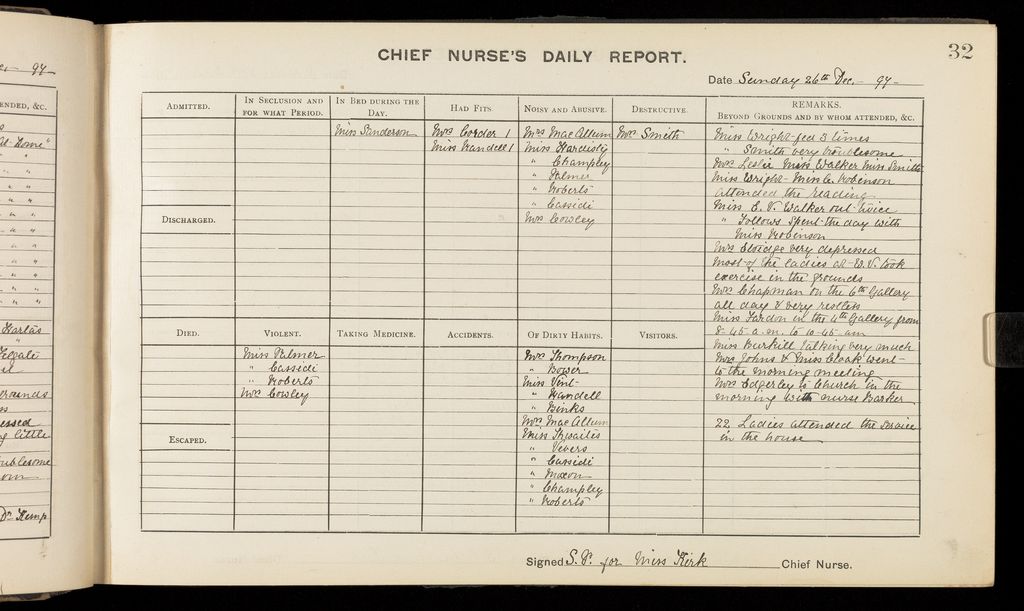 32
CHIEF NURSE'S DAILY REPORT.
Date Sunday 26th Dec. - 97 -
ADMITTED.
DISCHARGED.
DIED.
ESCAPED.
IN SECLUSION AND FOR WHAT PERIOD.
VIOLENT.
Miss Palmer
" Cassidi
" Roberts
Mrs Cowley
IN BED DURING THE DAY.
Miss Sanderson
TAKING MEDICINE.
HAD FITS.
Mrs Corder 1
Miss Handell 1
ACCIDENTS.
NOISY AND ABUSIVE.
Mrs Mac Allum
Miss Hardisty
" Champley
" Palmer
" Roberts
" Cassidi
Mrs Cowley
OF DIRTY HABITS.
Mrs Thompson
" Bower
Miss Vint
" Handell
" Binks
Mrs Mac Allum
Miss Thwaites
" Vevers
" Cassidi
" Moxon
" Champley
" Roberts
DESTRUCTIVE.
Mrs Smith
VISITORS.
REMARKS.
BEYOND GROUNDS AND BY WHOM ATTENDED, &C.
Miss Wright fed 3 times
" Smith very troublesome
Mrs Leslie Miss Walker Miss Smith
Miss Wright - Miss C. Robinson
attended the reading
Miss E. V. Walker out twice
" Follows Spent the day with
Miss Robinson
Mrs very depressed
Most of the ladies at W.V. took
exercise in the grounds
Mrs Chapman on the 6th Gallery
all day & very restless
Miss in the 4th Gallery from
8-45 a.m. to 10-45 am
Miss Burkill talking very much
Mrs Johns & Miss Cloak went
to the morning meeting
Mrs Edgerley to Church in the
morning with nurse Barker
22 Ladies attended the Service
in the house
Signed S. P. for Miss Kirk Chief Nurse.
97
ENDED, &C.
At Home"
grounds
little
Dr Kemp